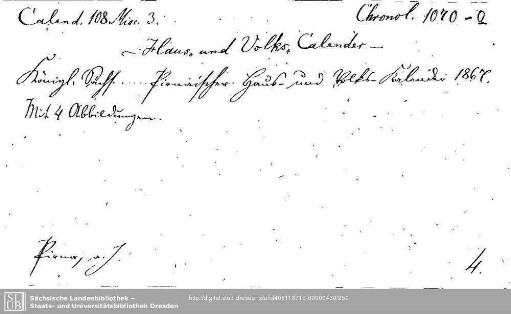 Calend. 108. Misc. 3. Chronol. 1070 - Q
- Haus- und Volks-Calender -
Königl. Sächs. .... Pirnaischer Haus- und Volks-Kalender 1867.
Mit 4 Abbildungen.
Pirna, o. J. 4.
Sächsische Landesbibliothek –
Staats- und Universitätsbibliothek Dresden